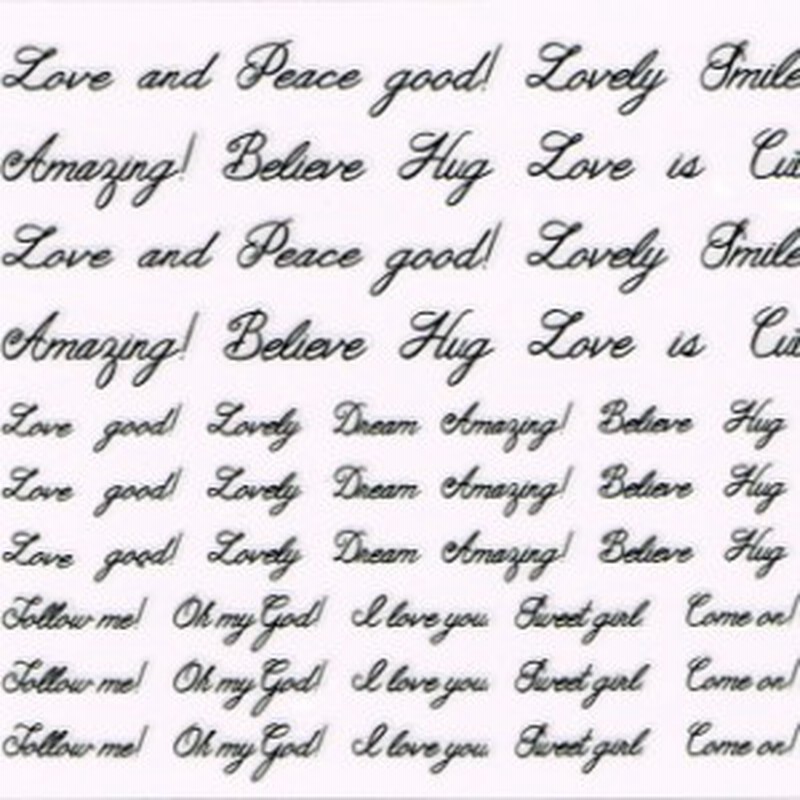 Love and Peace good! Lovely Smile
Amazing! Believe Hug Love is Cut
Love and Peace good! Lovely Smile
Amazing! Believe Hug Love is Cut
Love good! Lovely Dream Amazing! Believe Hug
Love good! Lovely Dream Amazing! Believe Hug
Love good! Lovely Dream Amazing! Believe Hug
Follow me! Oh my God! I love you Sweet girl Come on!
Follow me! Oh my God! I love you Sweet girl Come on!
Follow me! Oh my God! I love you Sweet girl Come on!